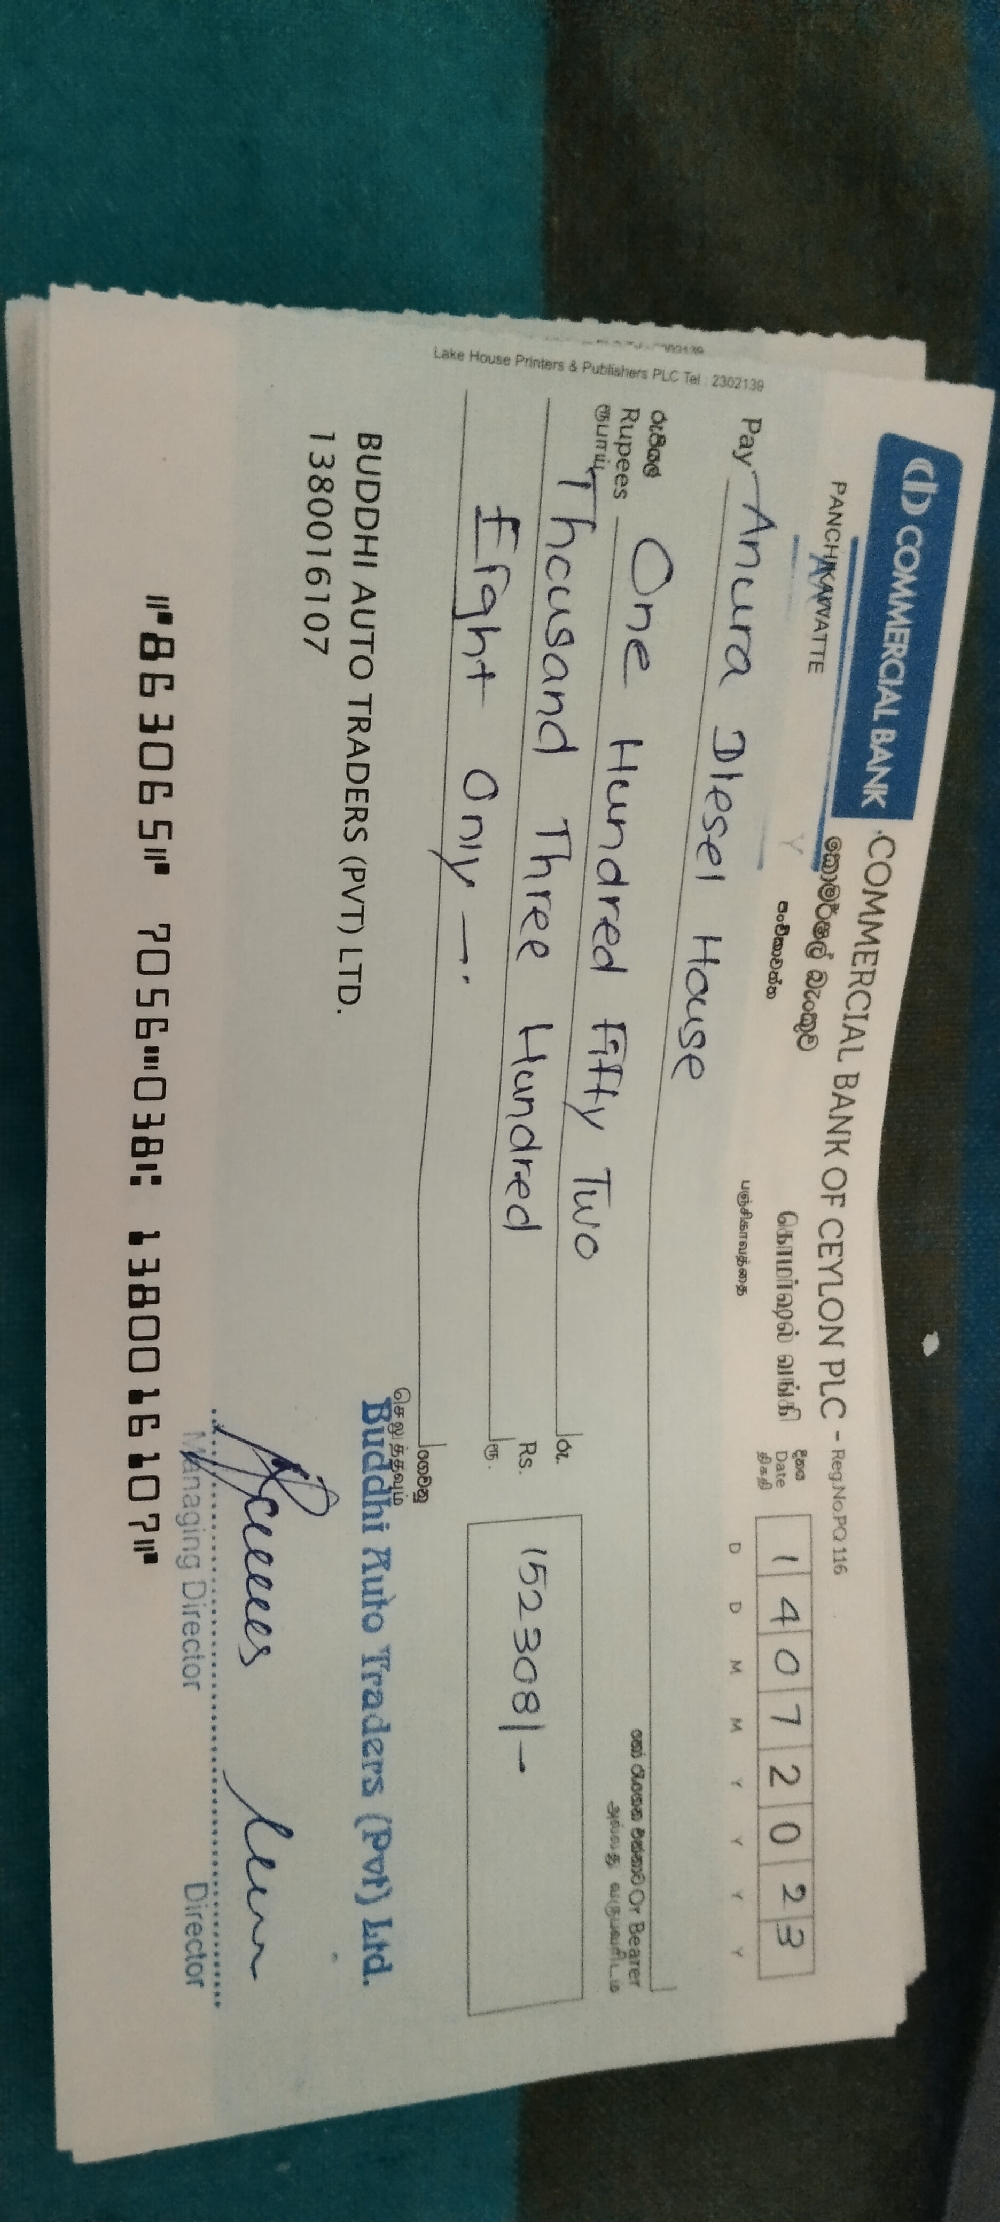 COMMERCIAL BANK
COMMERCIAL BANK OF CEYLON PLC - Reg.No.PQ 116
කොමර්ෂල් බැංකුව
கொமர்ஷல் வங்கி
PANCHIKAWATTE
පංචිකාවත්ත
பஞ்சிகாவத்தை
දිනය
Date
திகதி
1 4 0 7 2 0 2 3
D D M M Y Y Y Y
Pay Anura Diesel House
හෝ රැගෙන එන්නාට Or Bearer
රුපියල්
Rupees
ரூபாய்
One Hundred Fifty Two
Thousand Three Hundred
Eight Only -.
රු.
Rs.
ரூ.
152308/-
ගෙවනු
செலுத்தவும்
BUDDHI AUTO TRADERS (PVT) LTD.
1380016107
Buddhi Auto Traders (Pvt) Ltd.
Managing Director
Director
⑈863065⑈ 7056⑉038⑆ 1380016107⑈
Lake House Printers & Publishers PLC Tel : 2302139